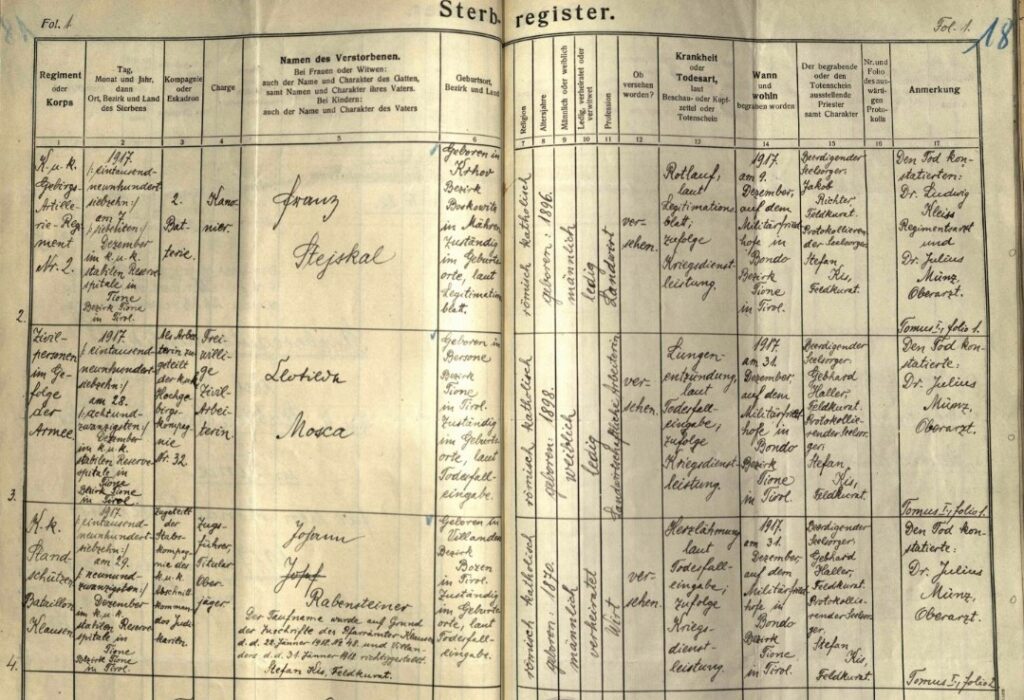 Fol. 1.
Sterb- register.
Fol. 1.
18
Regiment
oder
Korps
Tag,
Monat und Jahr,
dann
Ort, Bezirk und Land
des Sterbens
Kompagnie
oder
Eskadron
Charge
Namen des Verstorbenen.
Bei Frauen oder Witwen:
auch der Name und Charakter des Gatten,
samt Namen und Charakter ihres Vaters.
Bei Kindern:
auch der Name und Charakter des Vaters
Geburtsort,
Bezirk und Land
Religion
Altersjahre
Männlich oder weiblich
Ledig, verheiratet oder
verwitwet
Profession
Ob
versehen
worden?
Krankheit
oder
Todesart,
laut
Beschau- oder Kopf-
zettel oder
Totenschein
Wann
und
wohin
begraben worden
Der begrabende
oder den
Totenschein
ausstellende
Priester
samt Charakter
Nr. und
Folio
des aus-
wärti-
gen
Proto-
kolls
Anmerkung
1
2
3
4
5
6
7
8
9
10
11
12
13
14
15
16
17
2.
K. u. k.
Gebirgs-
Artille-
rie-Regi-
ment
Nr. 2.
1917.
/: eintausend-
neunhundert
siebzehn :/
am 7.
/: siebenten :/
Dezember
im k. u. k.
stabilen Reserve-
spitale in
Tione
Bezirk Tione
in Tirol.
2.
Bat-
terie.
Kano-
nier.
Franz
Stejskal
Geboren in
Krhov
Bezirk
Boskowitz
in Mähren
Zuständig
im Geburts-
orte, laut
Legitimations
blatt.
römisch katholisch
geboren: 1896.
männlich
ledig
Landwirt
ver-
sehen.
Rotlauf,
laut
Legitimations
blatt,
zufolge
Kriegsdienst-
leistung.
1917.
am 9.
Dezember,
auf dem
Militärfried-
hofe in
Bondo
Bezirk
Tione
in Tirol.
Beerdigender
Seelsorger:
Jakob
Richter,
Feldkurat.
Protokollieren-
der Seelsorger
Stefan
Kis,
Feldkurat.
Den Tod kon-
statierten:
Dr. Ludwig
Kleiss
Regimentsarzt
und
Dr. Julius
Münz,
Oberarzt.
Tomus I, folio 1.
3.
Zivil-
personen
im Ge-
folge
der
Armee.
1917.
/: eintausend-
neunhundert
siebzehn :/
am 28.
/: achtund-
zwanzigsten :/
Dezember
im k. u. k.
stabilen Reserve-
spitale in
Tione
Bezirk Tione
in Tirol.
Als Arbei-
terin zu-
geteilt
der k.u.k.
Hochge-
birgs-
kompag-
nie
Nr. 32.
Frei-
willi-
ge
Zivil-
Arbei-
terin.
Clotilda
Mosca
Geboren in
Bersone
Bezirk
Tione
in Tirol.
Zuständig
im Geburts-
orte, laut
Todesfall-
eingabe.
römisch katholisch
geboren: 1898.
weiblich
ledig
Landwirtschaftliche Arbeiterin
ver-
sehen.
Lungen-
entzündung,
laut
Todesfall-
eingabe,
zufolge
Kriegsdienst-
leistung.
1917.
am 31.
Dezember,
auf dem
Militärfried-
hofe in
Bondo
Bezirk
Tione
in Tirol.
Beerdigender
Seelsorger:
Gebhard
Haller,
Feldkurat.
Protokollie-
render Seelsor-
ger:
Stefan
Kis,
Feldkurat.
Den Tod kon-
statierte:
Dr. Julius
Münz,
Oberarzt.
Tomus I, folio 1.
4.
K. k.
Stand-
schützen
Bataillon
Klausen.
1917.
/: eintausend-
neunhundert-
siebzehn :/
am 29.
/: neunund-
zwanzigsten :/
Dezember
im k. u. k.
stabilen Reserve-
spitale in
Tione
Bezirk Tione
in Tirol.
Zugeteilt
der
Stabs-
kompag-
nie des
k. u. k.
Abschnitt-
komman-
dos Judi-
karien.
Zugs-
führer,
Titular
Ober-
jäger.
Johann
Josef
Rabensteiner
Der Taufname wurde auf Grund
der Zuschrifte des Pfarramter Klausen
d. d. 22. Jänner 1918 No 48. und Villan-
ders d. d. 31. Jänner 1918 richtiggestellt.
Stefan Kis, Feldkurat.
Geboren in
Villanders
Bezirk
Bozen
in Tirol.
Zuständig
im Geburts-
orte, laut
Todesfall-
eingabe.
römisch katholisch
geboren: 1870.
männlich
verheiratet
Wirt
ver-
sehen.
Herzlähmung
laut
Todesfall-
eingabe,
zufolge
Kriegs-
dienst-
leistung.
1917.
am 31.
Dezember,
auf dem
Militärfried-
hofe in
Bondo
Bezirk
Tione
in Tirol.
Beerdigender
Seelsorger:
Gebhard
Haller,
Feldkurat.
Protokollie-
render Seelsor-
ger:
Stefan
Kis,
Feldkurat.
Den Tod kon-
statierte:
Dr. Julius
Münz,
Oberarzt.
Tomus I, folio 1.